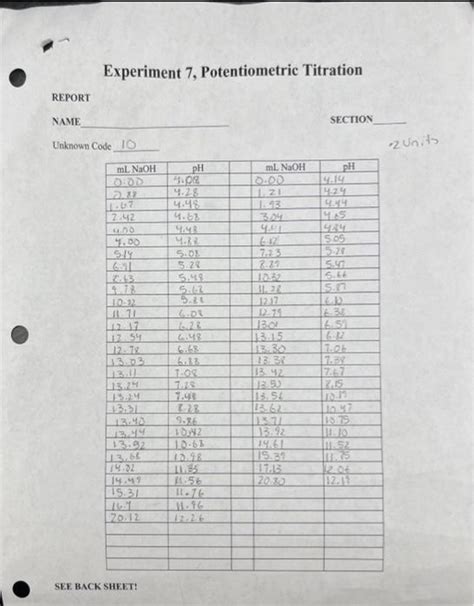 Experiment 7, Potentiometric Titration
REPORT
NAME SECTION
Unknown Code 10 .2 Units
mL NaOH pH mL NaOH pH
0.00 4.08 0.00 4.14
4.28 1.21 4.24
1.67 4.48 1.93 4.44
2.42 4.63 3.04 4.65
4.00 4.48 4.84
4.00 4.88 6.82 5.05
5.08 7.23 5.28
6.91 5.28 5.47
8.63 5.48 10.32 5.66
9.78 5.68 11.28 5.87
10.82 5.88 12.17
11.71 6.08 12.79 6.38
12.17 6.28 13.01 6.59
12.54 6.48 13.15 6.82
12.78 6.68 13.30 7.06
13.03 6.88 13.38 7.38
13.11 7.08 13.42 7.67
13.24 7.28 13.50 8.15
13.24 7.48 13.56
13.31 8.28 13.62 10.47
13.40 9.86 13.71 10.75
13.44 10.42 13.92 11.10
13.52 10.63 14.61 11.52
13.68 10.98 15.39 11.75
14.02 11.35 17.13 12.06
14.49 11.56 20.80 12.19
15.31 11.76
11.96
20.12 12.26
SEE BACK SHEET!